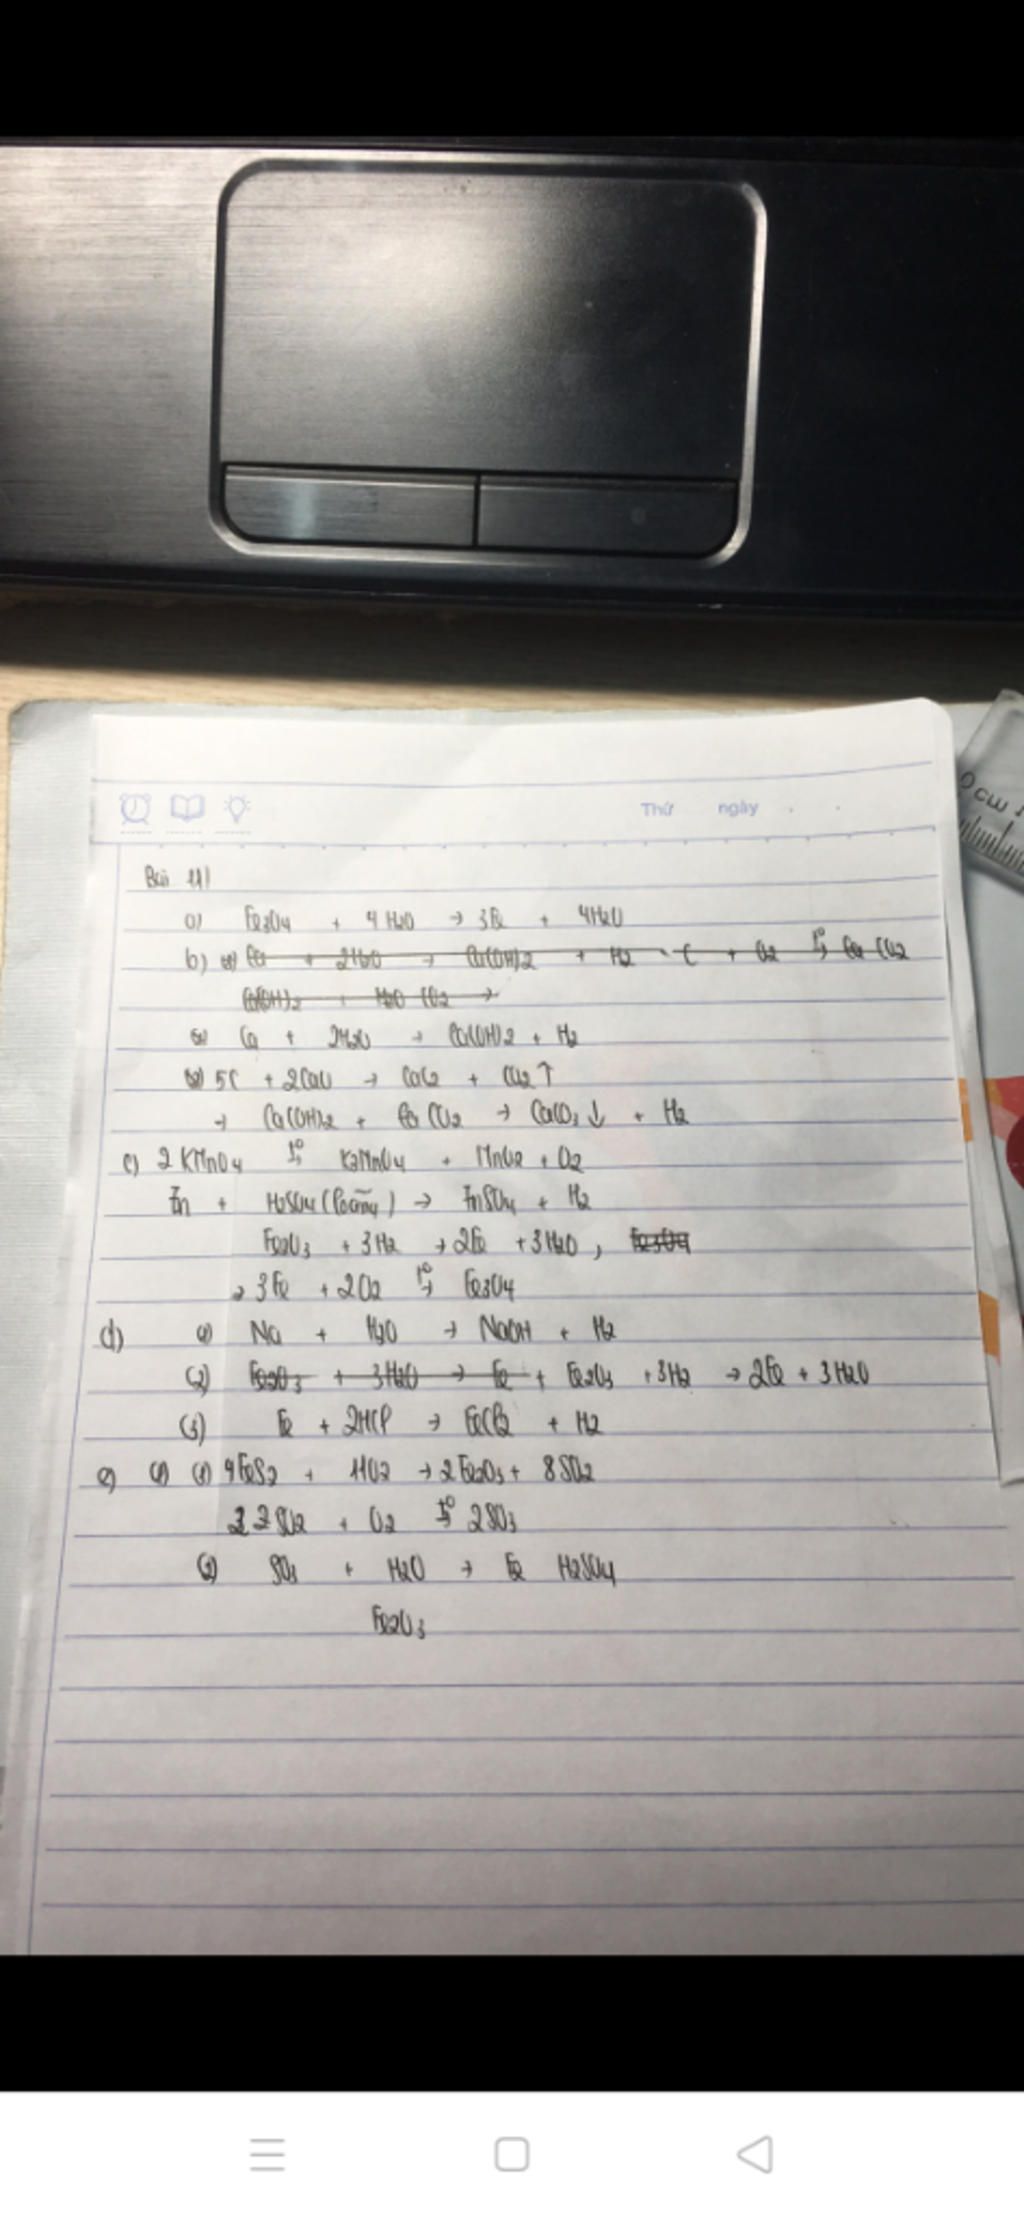 Thứ ngày
0 cm 1
Bài 11)
a) Fe3O4 + 4H2O → 3Fe + 4H2O
b) Ca + 2H2O → Ca(OH)2 + H2 C + O2 t° → CO2
Ca(OH)2 + H2O CO2 →
Ca + 2H2O → Ca(OH)2 + H2
5C + 2CaO → CaC2 + CO2↑
→ Ca(OH)2 + CO2 → CaCO3 ↓ + H2
c) 2KMnO4 t° → K2MnO4 + MnO2 + O2
Zn + H2SO4 (loãng) → ZnSO4 + H2
Fe2O3 + 3H2 → 2Fe + 3H2O, Fe3O4
→ 3Fe + 2O2 t° → Fe3O4
d) (1) Na + H2O → NaOH + H2
(2) Fe2O3 + 3H2O → Fe + Fe2O3 + 3H2 → 2Fe + 3H2O
(3) Fe + 2HCl → FeCl2 + H2
e) (1) (1) 4FeS2 + 11O2 → 2Fe2O3 + 8SO2
2 2SO2 + O2 t° → 2SO3
(3) SO3 + H2O → Fe H2SO4
Fe2O3